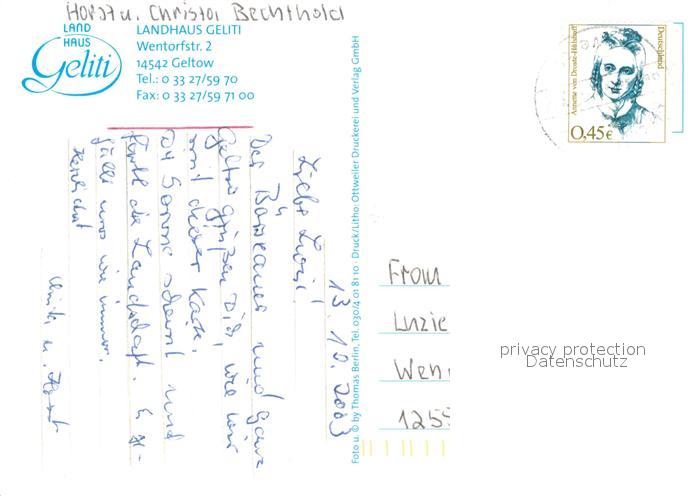 Horst u. Christa Bechthold
LAND
HAUS
Geliti
LANDHAUS GELITI
Wentorfstr. 2
14542 Geltow
Tel.: 0 33 27/59 70
Fax: 0 33 27/59 71 00
13. 10. 2003
Liebe
Der und ganz
Geltow grüßen Dich, wie wir
mit dieser Karte.
Die Sonne scheint und
die Landschaft. Es ge-
fällt uns wie immer.
Herzlichst
u. Horst
Foto u. © by Thomas Berlin, Tel. 030/4 01 81 10 · Druck/Litho: Ottweiler Druckerei und Verlag GmbH
Annette von Droste-Hülshoff
Deutschland
0,45€
From
Luzie
Wen
1255
privacy protection
Datenschutz